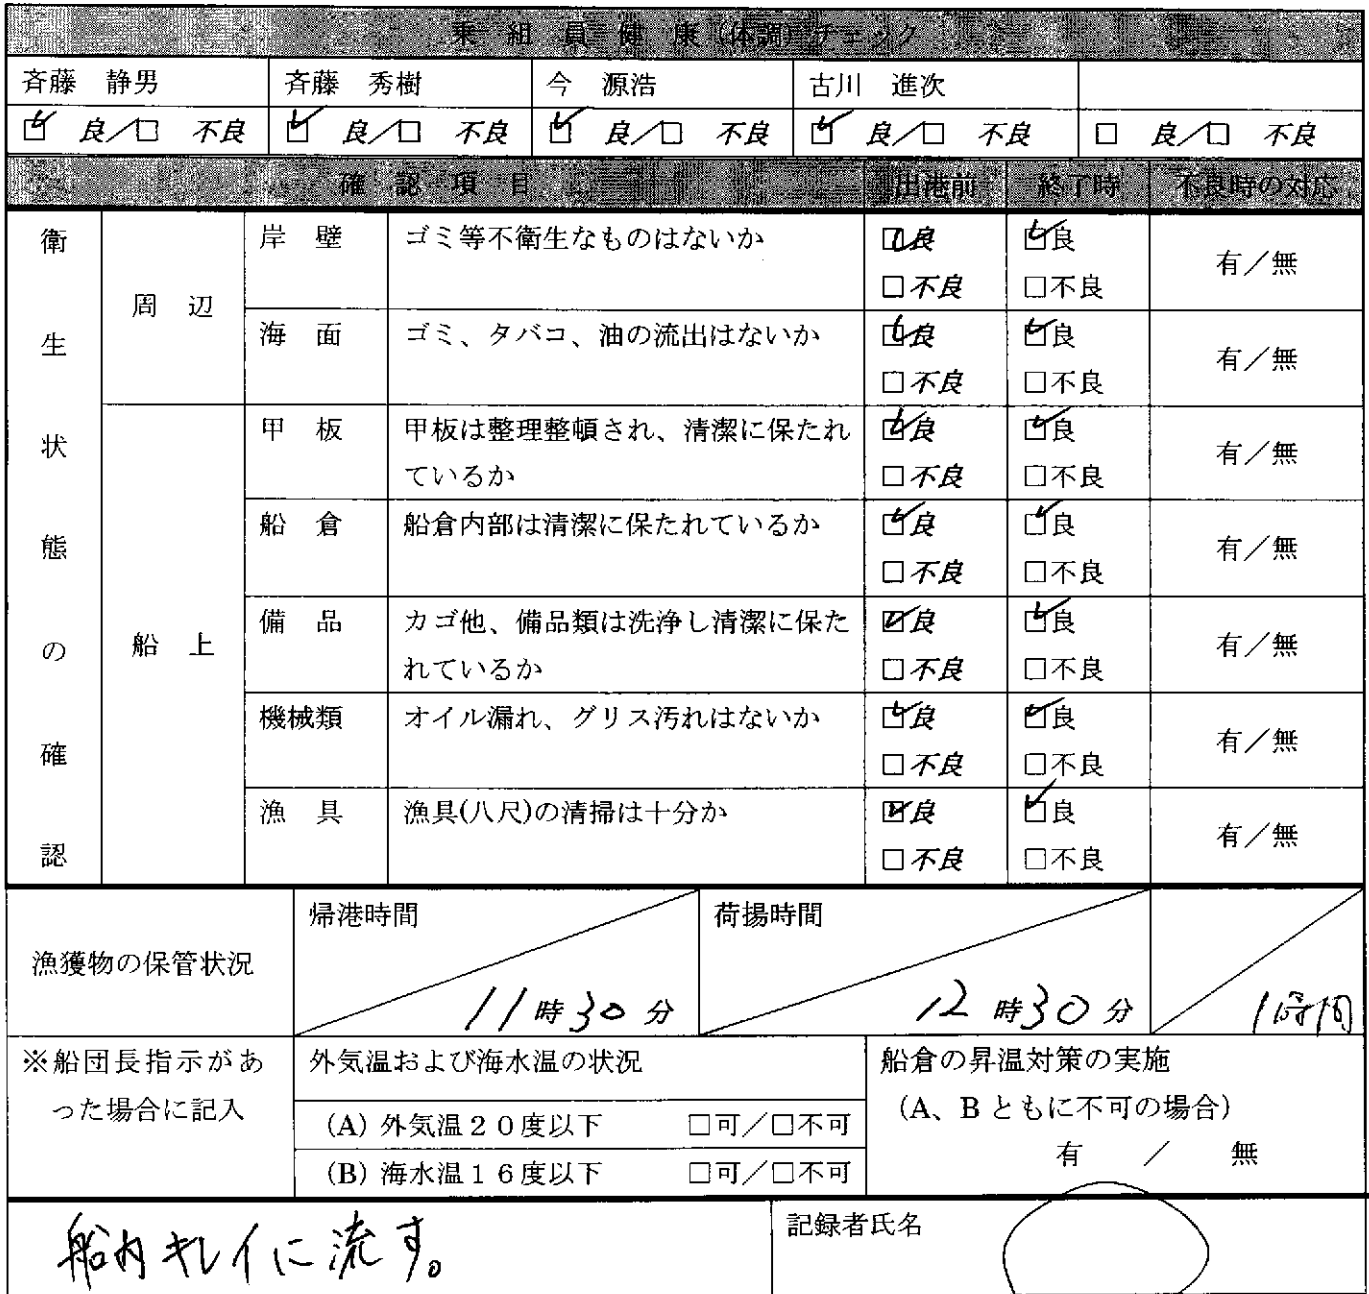 乗組員健康(体調)チェック
斉藤 静男 斉藤 秀樹 今 源浩 古川 進次
☑ 良/□ 不良 ☑ 良/□ 不良 ☑ 良/□ 不良 ☑ 良/□ 不良 □ 良/□ 不良
確認項目 出港前 終了時 不良時の対応
衛生状態の確認
周辺
岸壁 ゴミ等不衛生なものはないか ☑良 ☑良 有/無
□不良 □不良
海面 ゴミ、タバコ、油の流出はないか ☑良 ☑良 有/無
□不良 □不良
船上
甲板 甲板は整理整頓され、清潔に保たれ ☑良 ☑良 有/無
ているか □不良 □不良
船倉 船倉内部は清潔に保たれているか ☑良 ☑良 有/無
□不良 □不良
備品 カゴ他、備品類は洗浄し清潔に保た ☑良 ☑良 有/無
れているか □不良 □不良
機械類 オイル漏れ、グリス汚れはないか ☑良 ☑良 有/無
□不良 □不良
漁具 漁具(八尺)の清掃は十分か ☑良 ☑良 有/無
□不良 □不良
漁獲物の保管状況
帰港時間 荷揚時間
11時30分 12時30分 1時間
※船団長指示があ
った場合に記入
外気温および海水温の状況
(A) 外気温20度以下 □可/□不可
(B) 海水温16度以下 □可/□不可
船倉の昇温対策の実施
(A、Bともに不可の場合)
有 / 無
船内キレイに流す。
記録者氏名